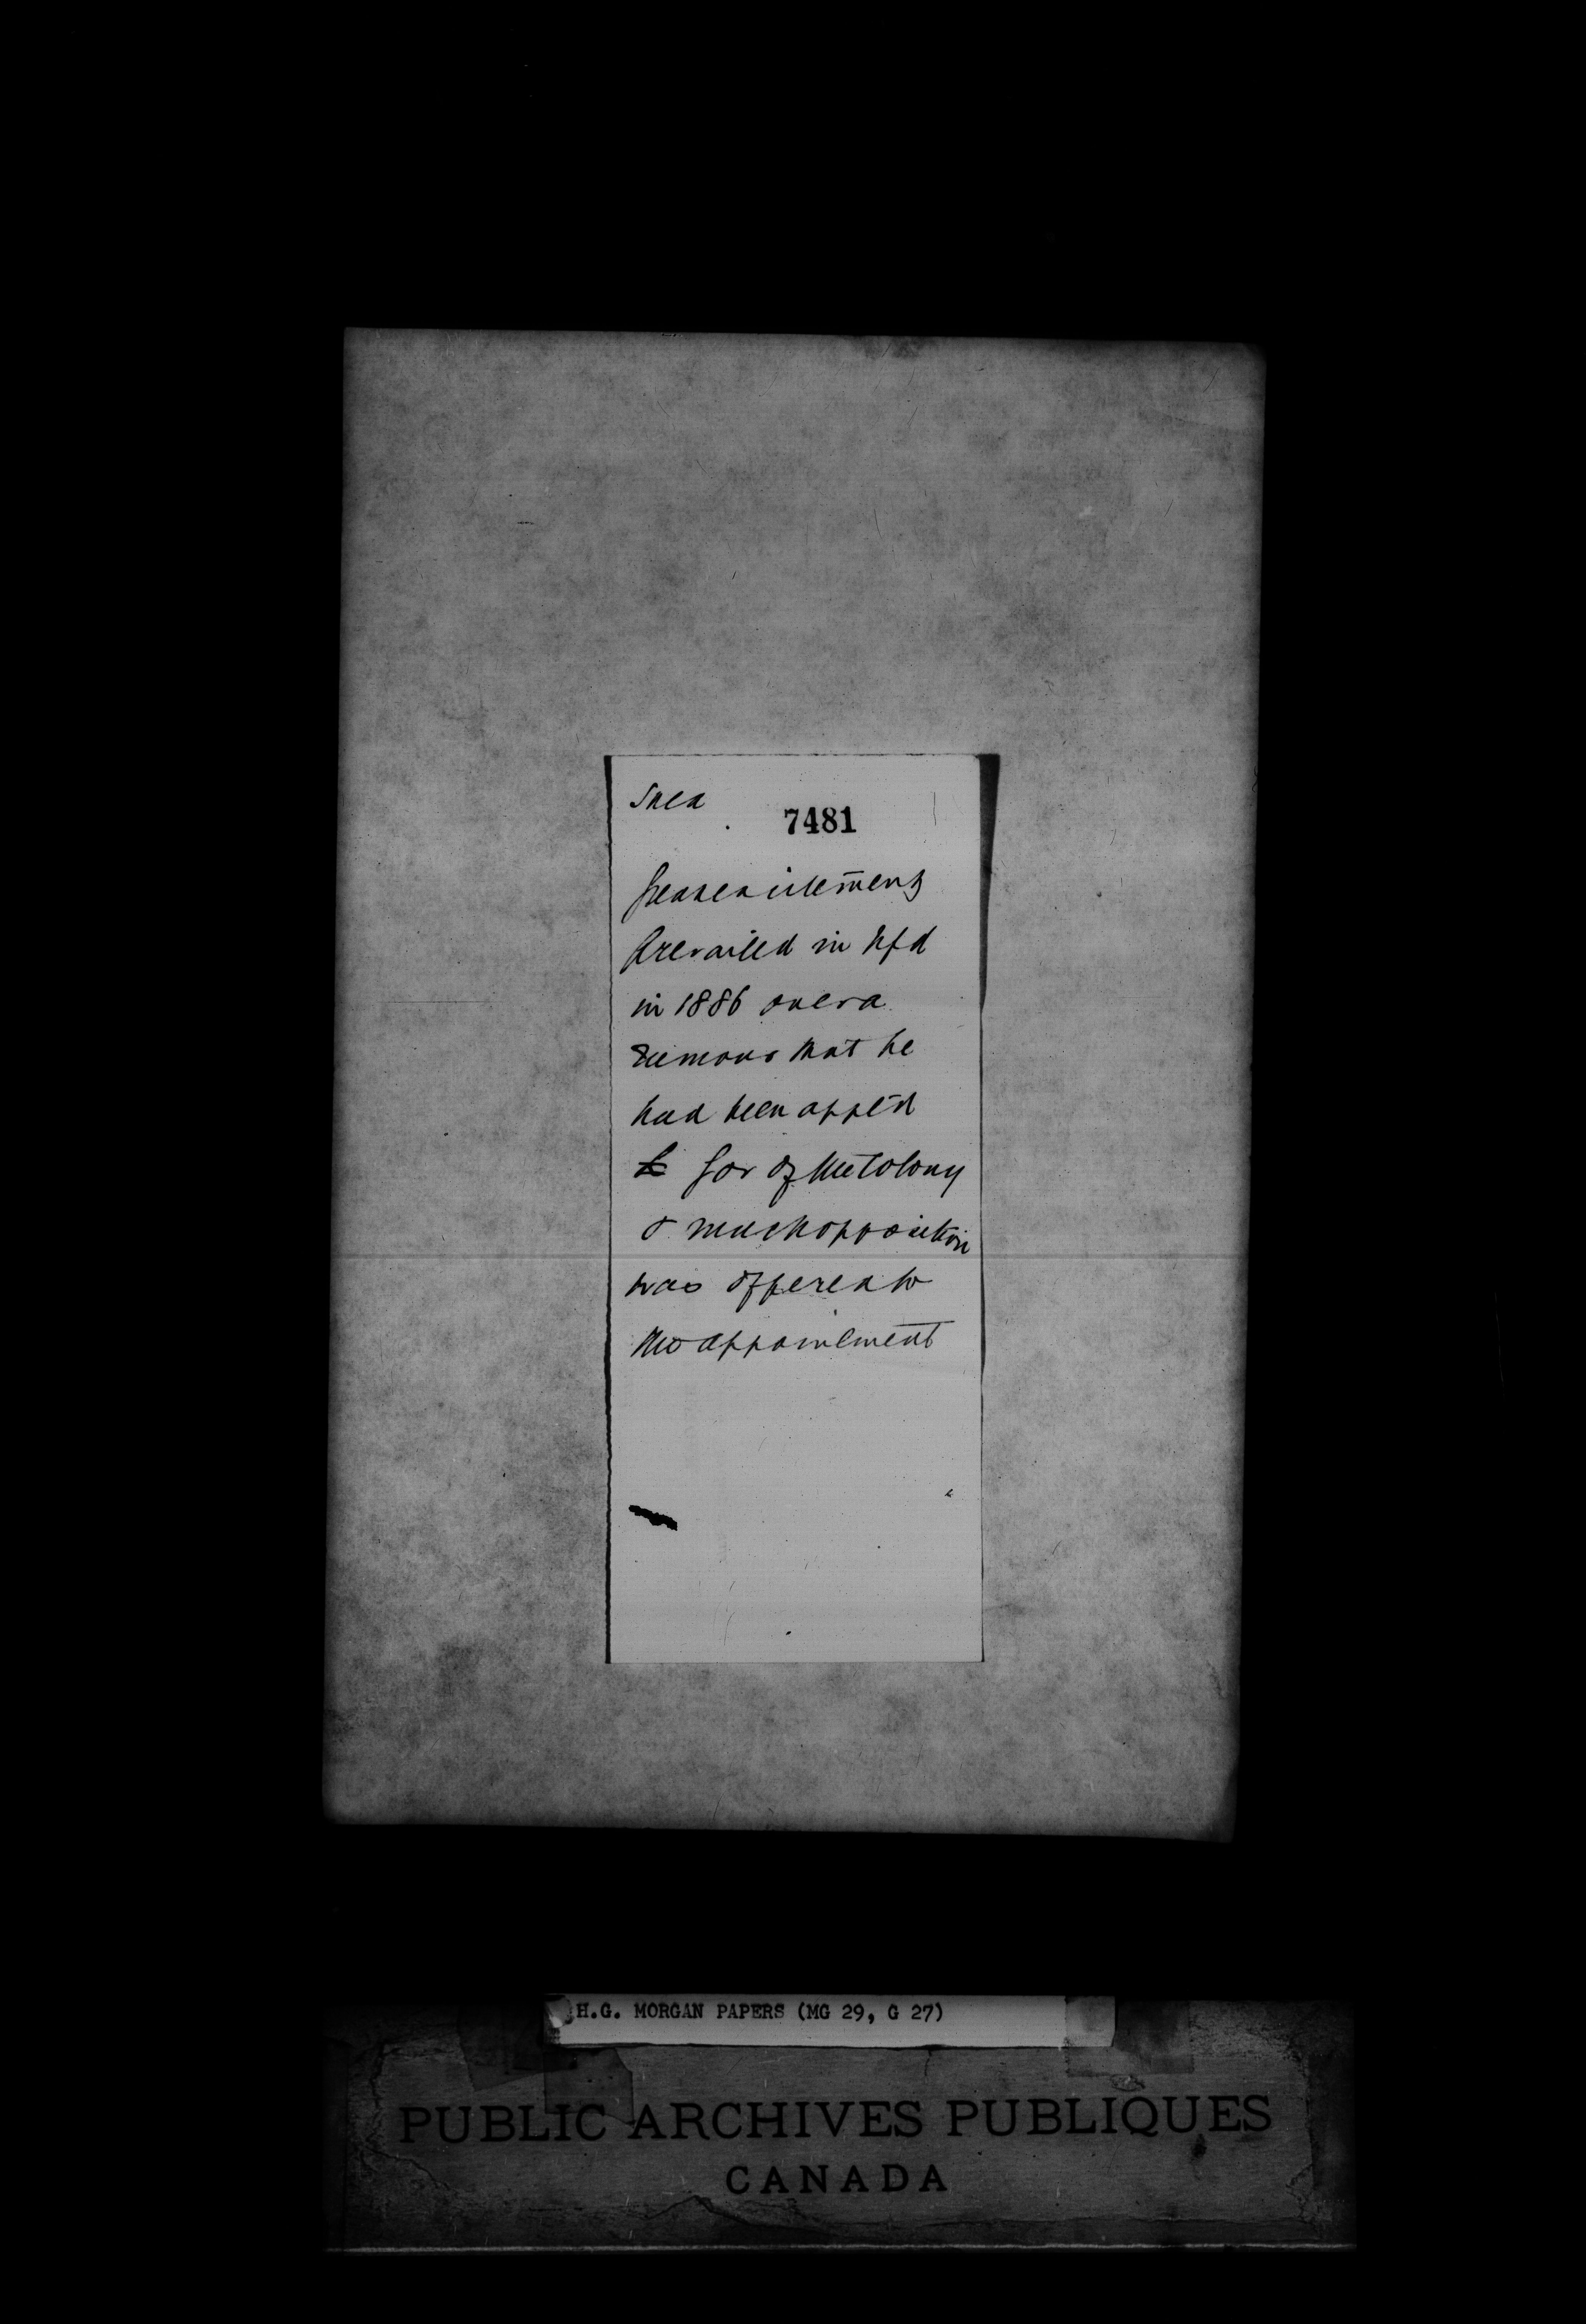 Shea
7481
Great excitement
prevailed in Nfd
in 1886 over a
rumour that he
had been app'td
to Gov of the Colony
& much opposition
was offered to
the appointment
H.G. MORGAN PAPERS (MG 29, G 27)
PUBLIC ARCHIVES PUBLIQUES
CANADA